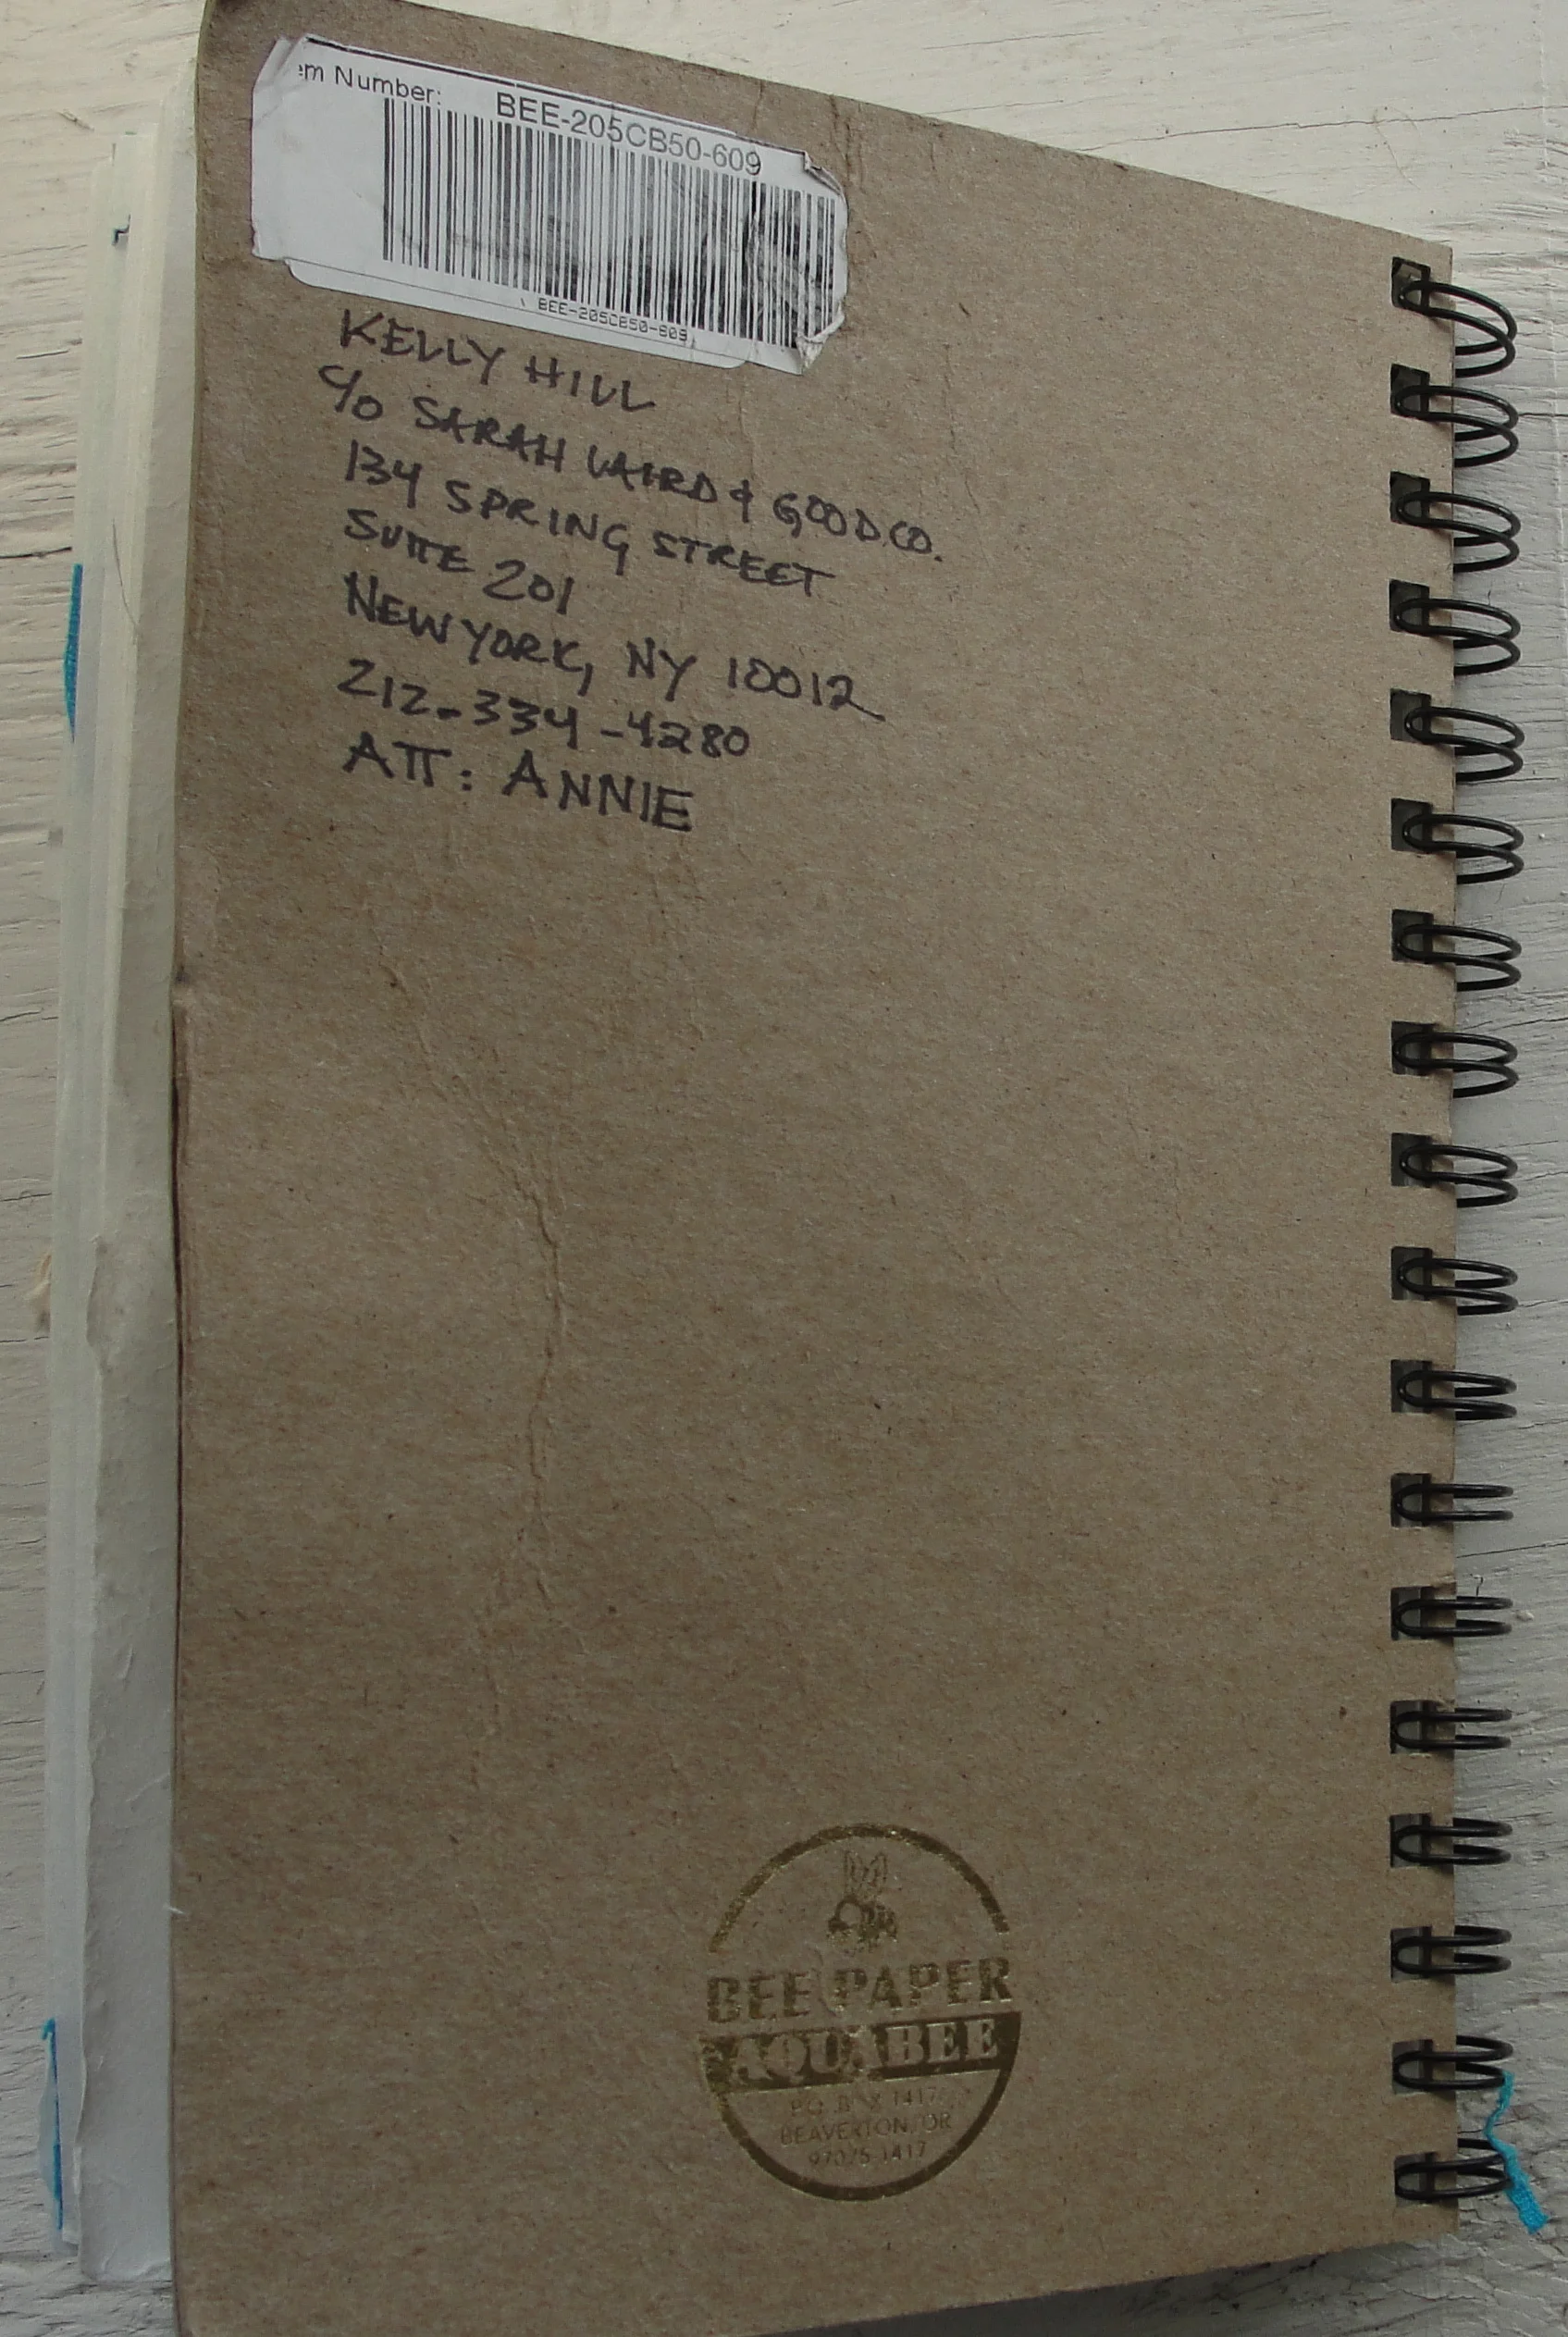 em Number: BEE-205CB50-609
BEE-205CB50-609
KELLY HILL
c/o SARAH LAIRD & GOOD CO.
134 SPRING STREET
SUITE 201
NEW YORK, NY 10012
212-334-4280
ATT: ANNIE
BEE PAPER
AQUABEE
P.O. BOX 1417
BEAVERTON, OR
97075-1417